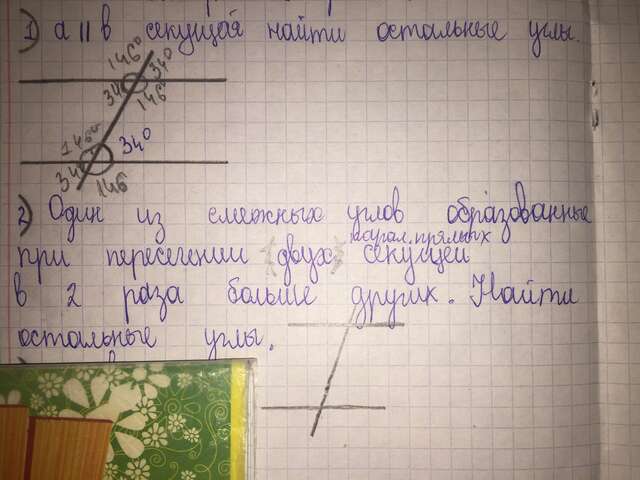 1) a || в секущая найти остальные углы.
146° 34°
34 146°
146° 34°
34 146
2) Один из смежных углов образованные
парал. прямых
при пересечении (двух) секущей
в 2 раза больше других. Найти
остальные углы.